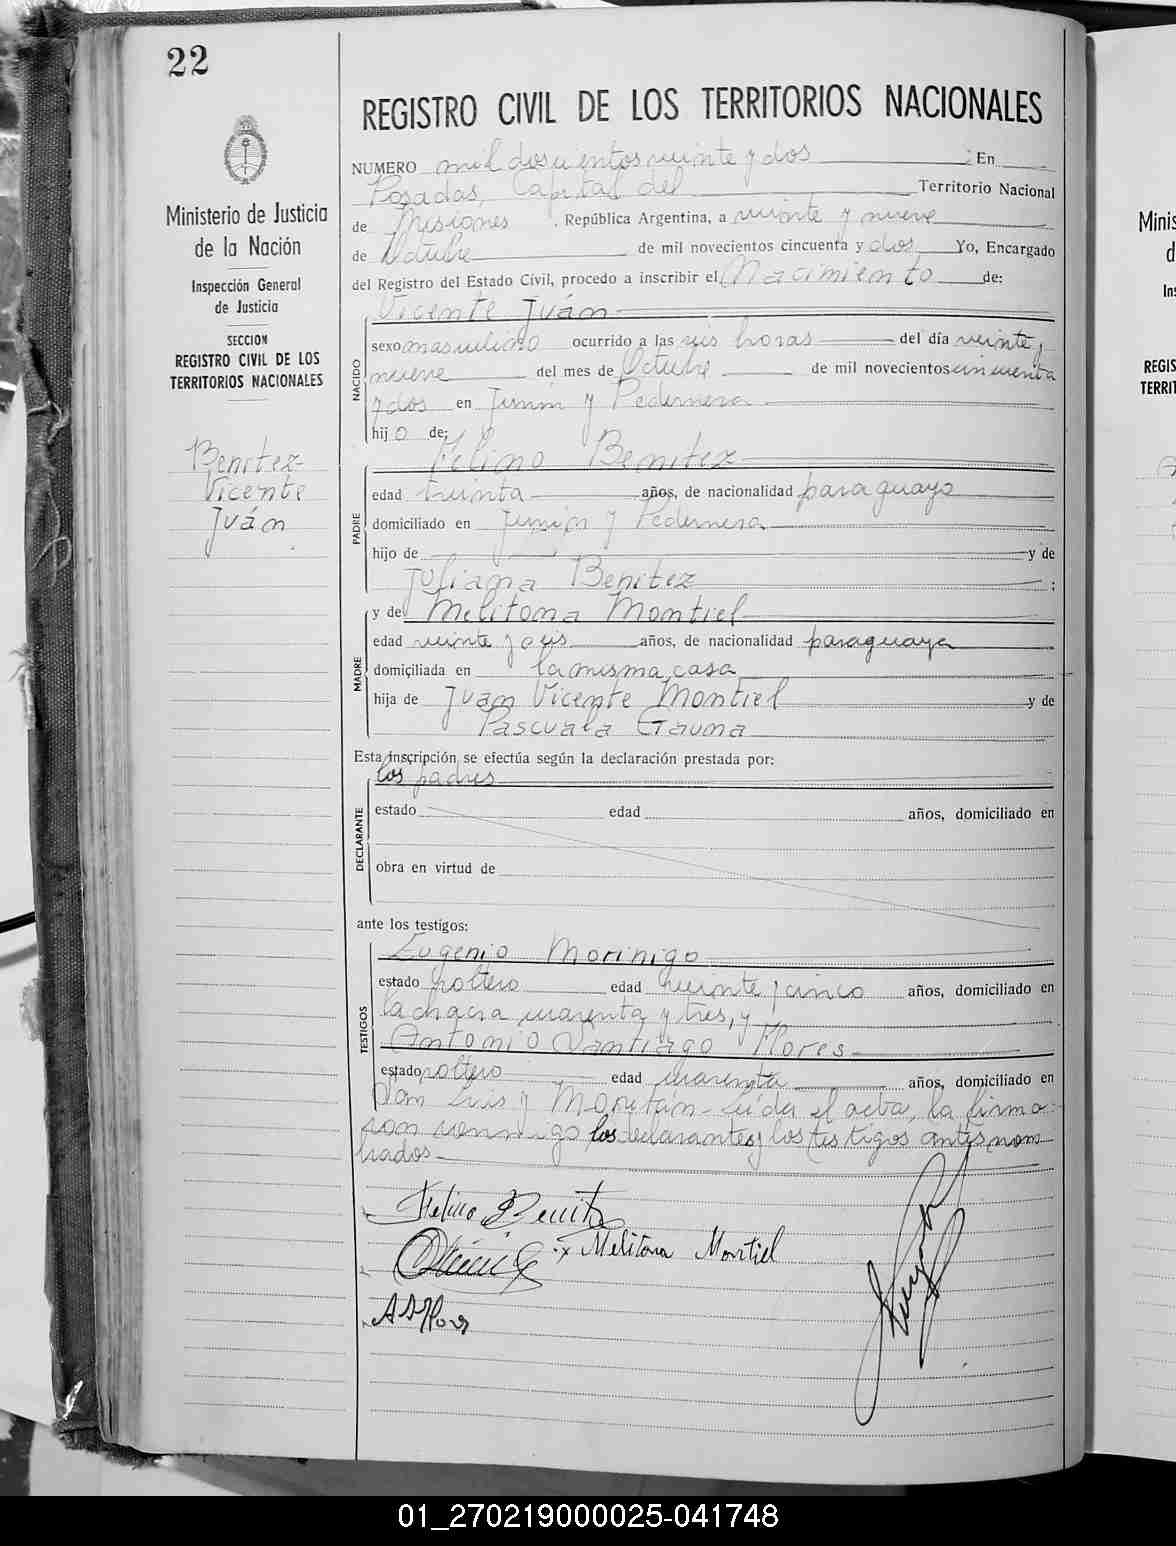 22
REGISTRO CIVIL DE LOS TERRITORIOS NACIONALES
Ministerio de Justicia
de la Nación
Inspección General
de Justicia
SECCION
REGISTRO CIVIL DE LOS
TERRITORIOS NACIONALES
Benitez-
Vicente
Juán
NUMERO mil doscientos veinte y dos ; En
Posadas, Capital del Territorio Nacional
de Misiones . República Argentina, a veinte y nueve
de Octubre de mil novecientos cincuenta y dos Yo, Encargado
del Registro del Estado Civil, procedo a inscribir el Nacimiento de:
NACIDO
Vicente Juán
sexo masculino ocurrido a las seis horas del día veinte y
nueve del mes de Octubre de mil novecientos cincuenta
y dos en Junin y Pedernera
hijo de:
PADRE
Felino Benitez
edad treinta años, de nacionalidad paraguayo
domiciliado en Junin y Pedernera
hijo de y de
Juliana Benitez ;
MADRE
y de Melitona Montiel
edad veinte y seis años, de nacionalidad paraguaya
domiciliada en la misma casa
hija de Juán Vicente Montiel y de
Pascuala Gauna
Esta inscripción se efectúa según la declaración prestada por:
DECLARANTE
los padres
estado edad años, domiciliado en
obra en virtud de
ante los testigos:
TESTIGOS
Eugenio Morinigo
estado soltero edad veinte y cinco años, domiciliado en
la chacra cuarenta y tres, y
Antonio Santiago Flores
estado soltero edad cuarenta años, domiciliado en
San Luis y Moritán- Leída el acta, la firma-
ron conmigo los declarantes y los testigos antes nom-
brados-
Felino Benitez
x Melitona Montiel
A S Flores
01_270219000025-041748